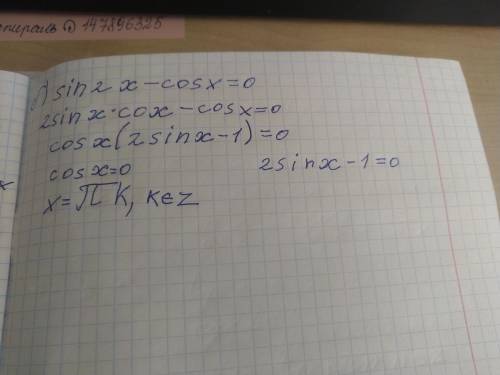 спираль 147896325
1) sin2x-cosx=0
2sinx·cox-cosx=0
cosx(2sinx-1)=0
cosx=0 2sinx-1=0
x=Пк, kєz
x